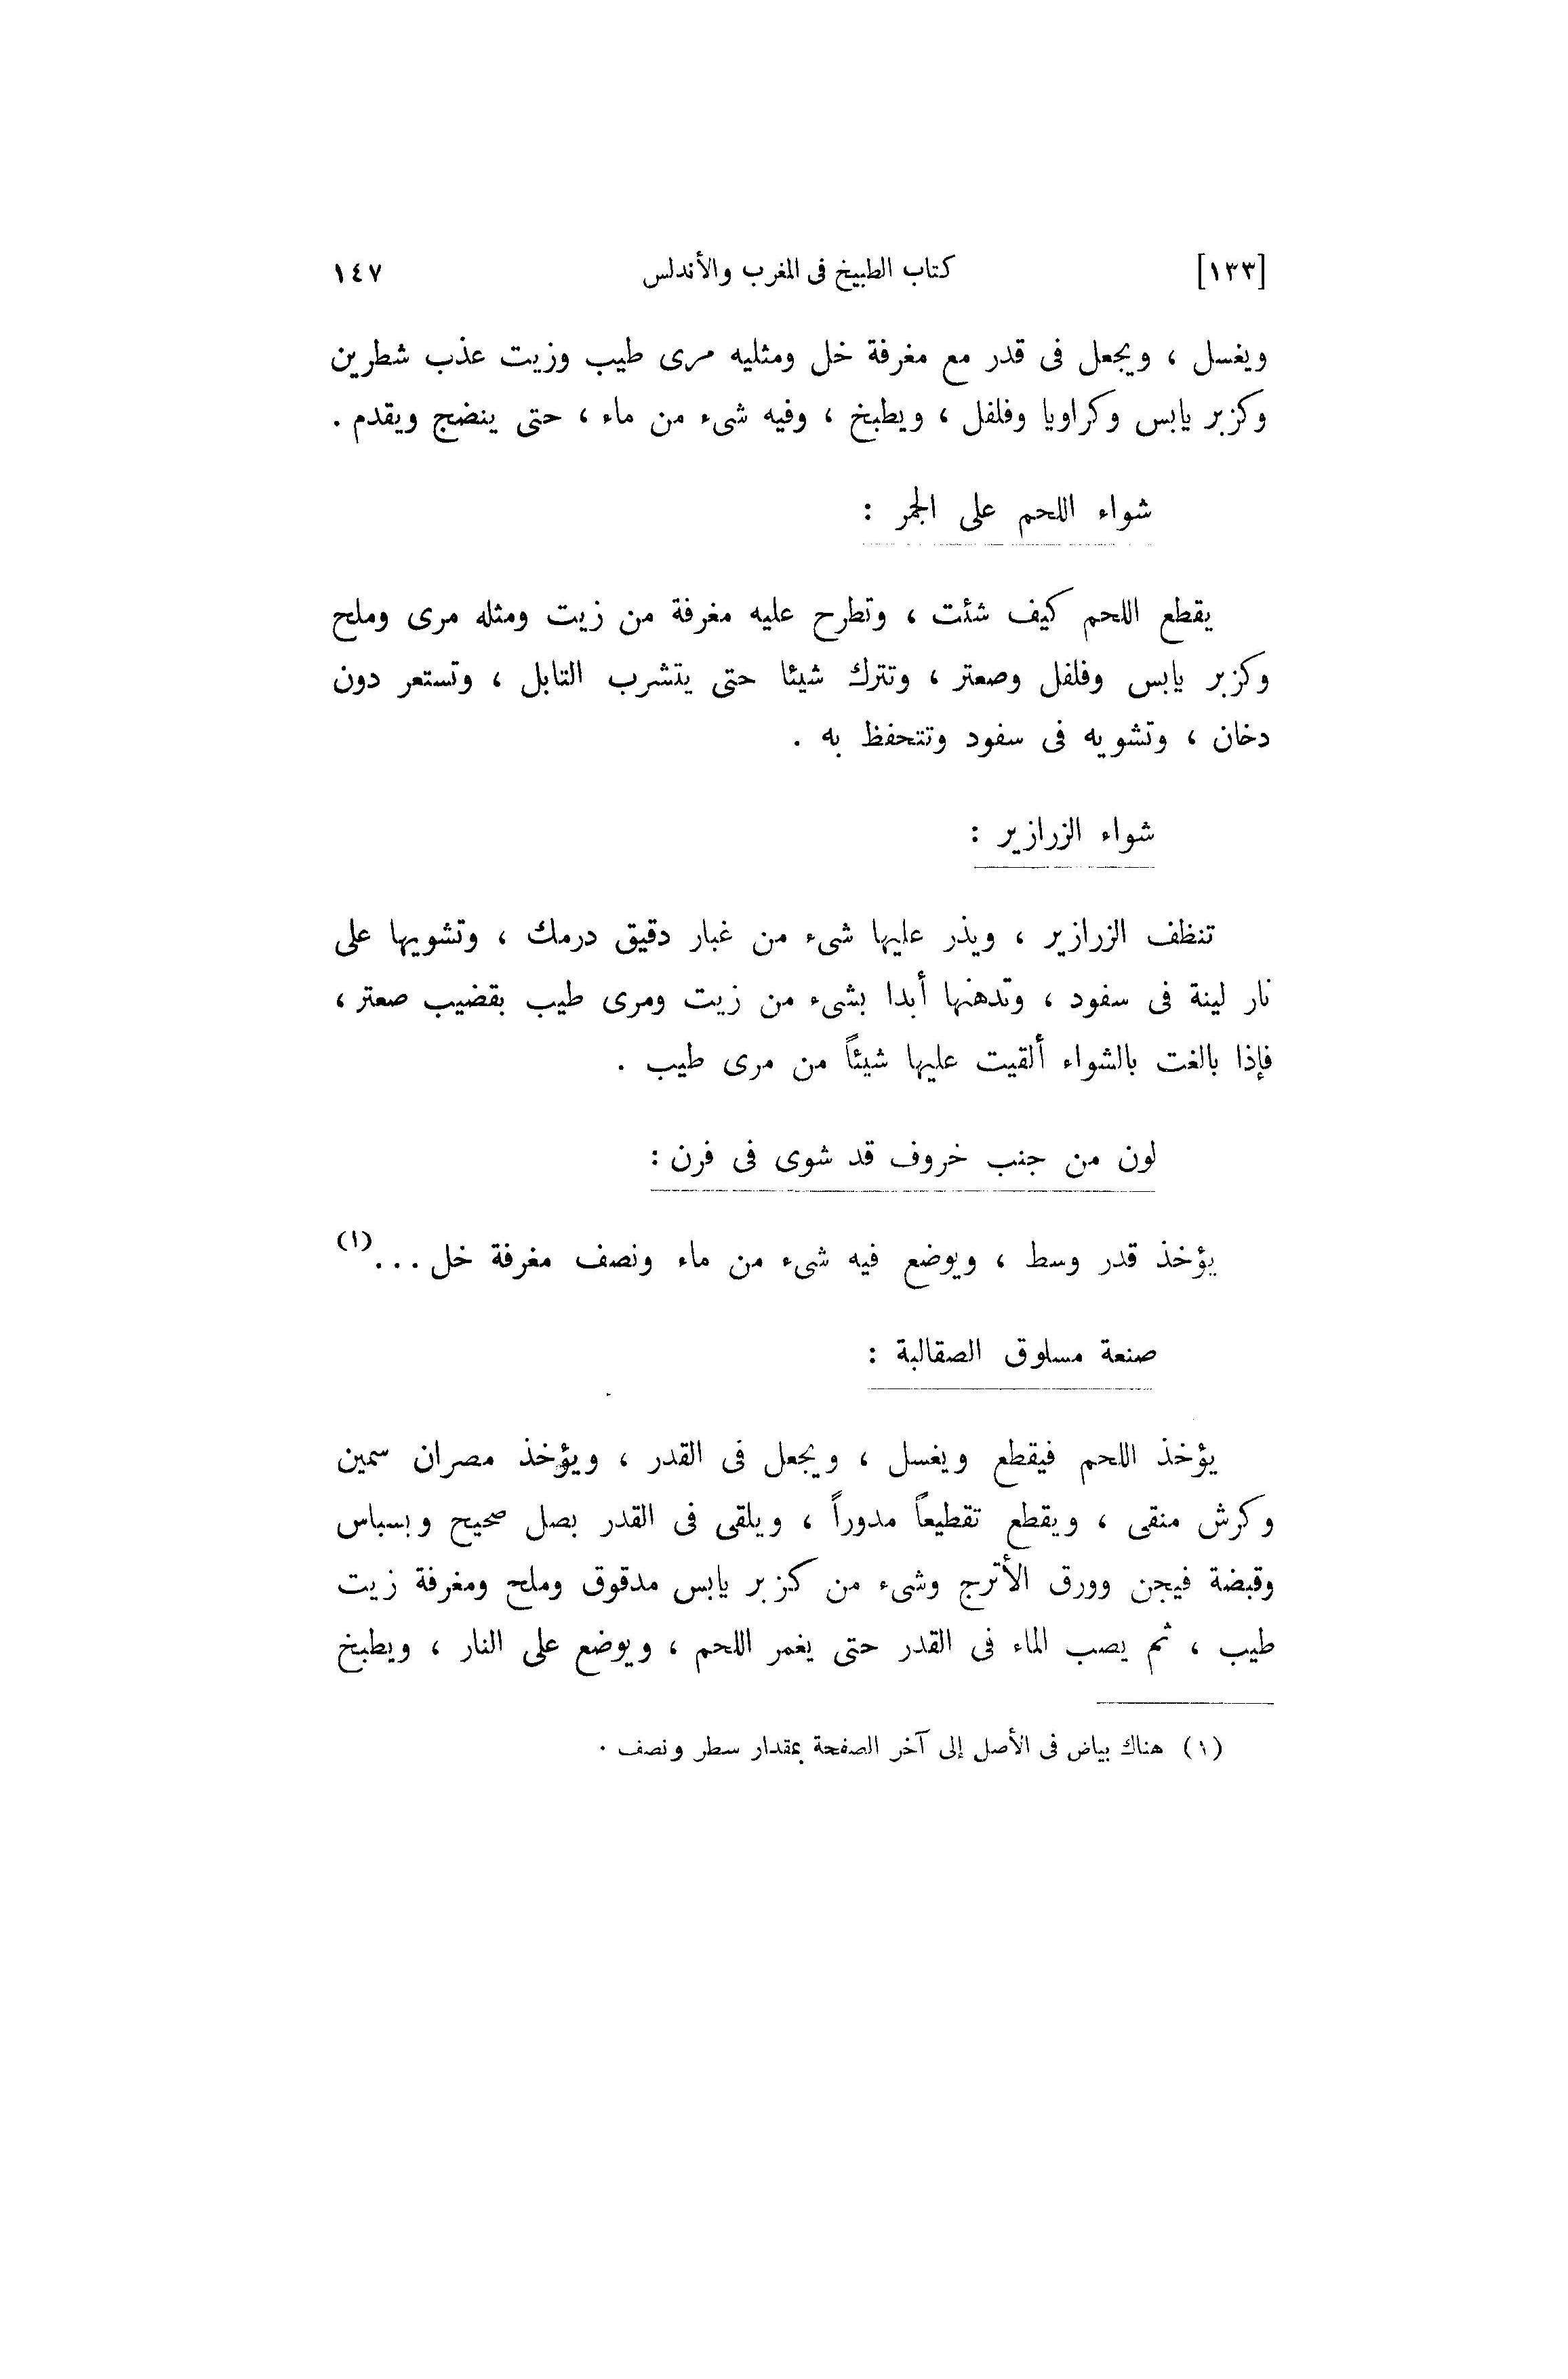 [١٣٣] كتاب الطبيخ فى المغرب والأندلس ١٤٧
ويغسل ، ويجعل فى قدر مع مغرفة خل ومثليه مرى طيب وزيت عذب شطرين
وكزبر يابس وكراويا وفلفل ، ويطبخ ، وفيه شىء من ماء ، حتى ينضج ويقدم .
شواء اللحم على الجمر :
يقطع اللحم كيف شئت ، وتطرح عليه مغرفة من زيت ومثله مرى وملح
وكزبر يابس وفلفل وصعتر ، وتترك شيئا حتى يتشرب التابل ، وتستعر دون
دخان ، وتشويه فى سفود وتتحفظ به .
شواء الزرازير :
تنظف الزرازير ، ويذر عليها شىء من غبار دقيق درمك ، وتشويها على
نار لينة فى سفود ، وتدهنها أبدا بشىء من زيت ومرى طيب بقضيب صعتر ،
فإذا بالغت بالشواء ألقيت عليها شيئاً من مرى طيب .
لون من جنب خروف قد شوى فى فرن :
يؤخذ قدر وسط ، ويوضع فيه شىء من ماء ونصف مغرفة خل ... (١)
صنعة مسلوق الصقالبة :
يؤخذ اللحم فيقطع ويغسل ، ويجعل فى القدر ، ويؤخذ مصران سمين
وكرش منقى ، ويقطع تقطيعاً مدوراً ، ويلقى فى القدر بصل صحيح وبسباس
وقبضة فيجن وورق الأترج وشىء من كزبر يابس مدقوق وملح ومغرفة زيت
طيب ، ثم يصب الماء فى القدر حتى يغمر اللحم ، ويوضع على النار ، ويطبخ
(١) هناك بياض فى الأصل إلى آخر الصفحة بمقدار سطر ونصف .